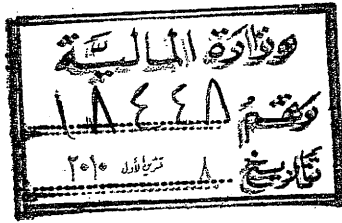 وزارة المالية
رقم ١٨٤٤٨
تاريخ ٨ تشرين الأول ٢٠١٠